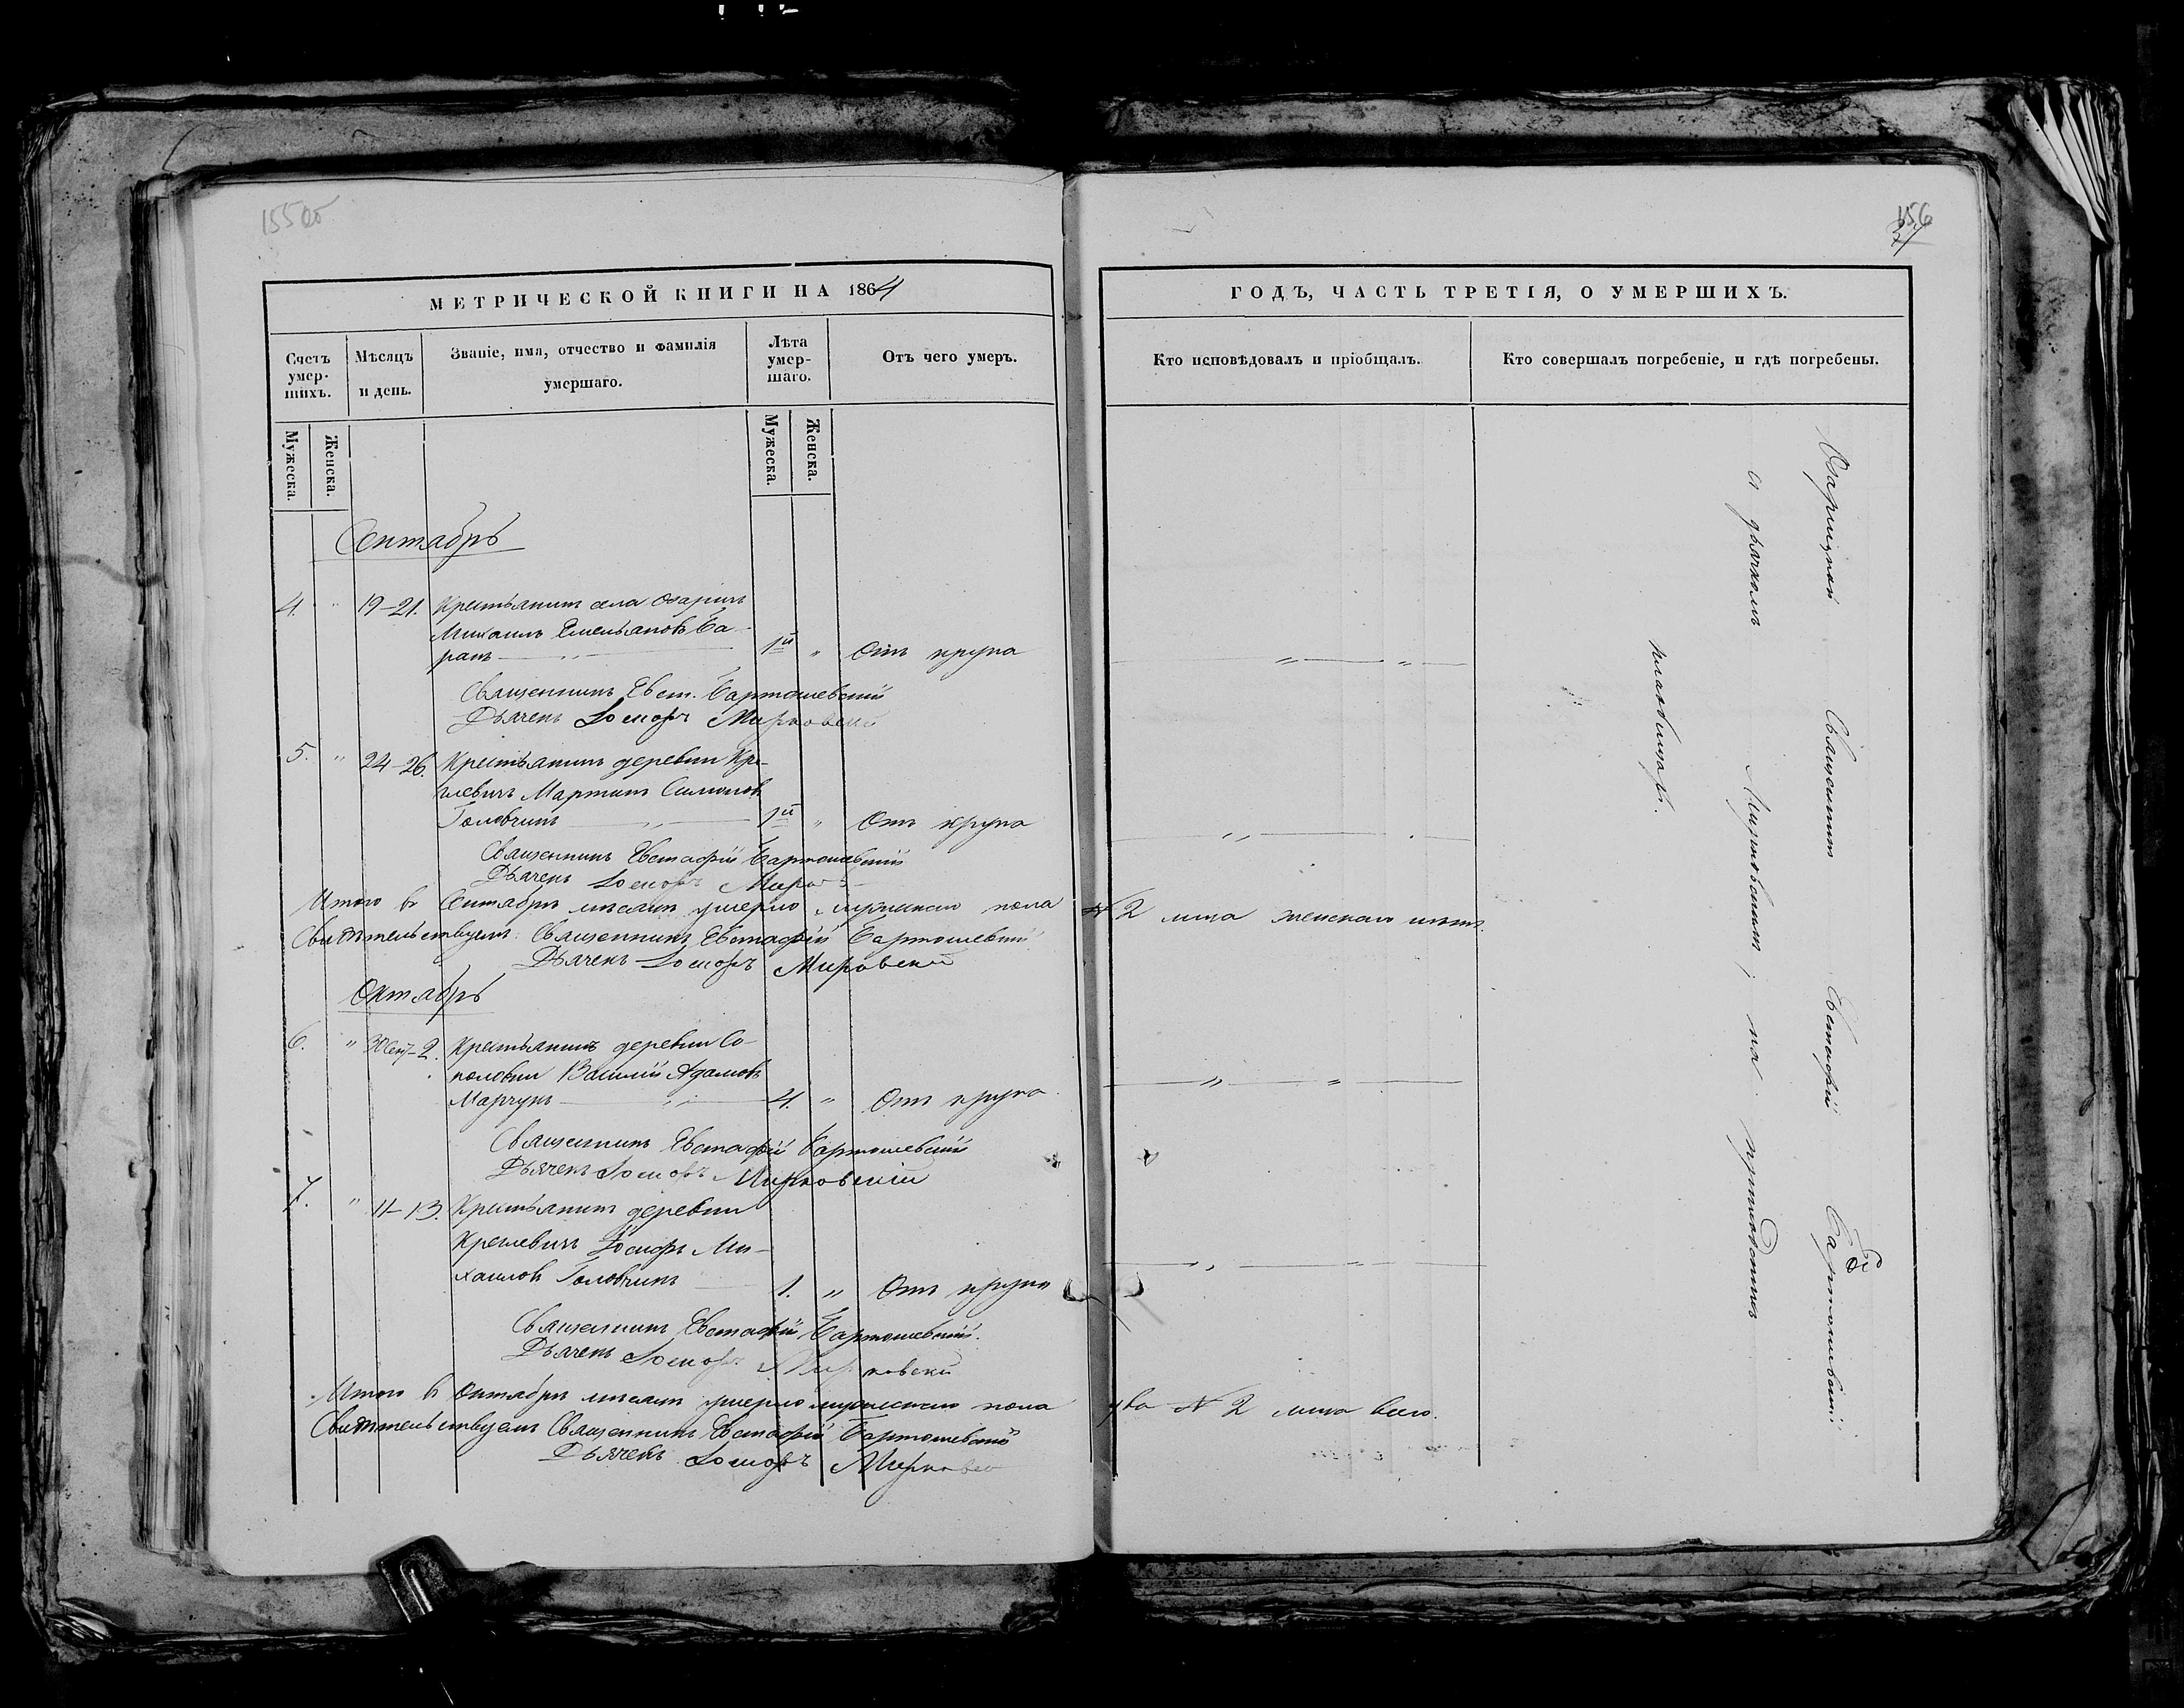 155об
156
37
МЕТРИЧЕСКОЙ КНИГИ НА 1864
Счетъ умер-шихъ.
Мѣсяцъ и день.
Званіе, имя, отчество и фамилія умершаго.
Лѣта умер-шаго.
Отъ чего умеръ.
Мужеска.
Женска.
Мужеска.
Женска.
Сентябрь
4. " 19–21. Крестьянинъ села Озаричъ
Михаилъ Емельяновъ Ба-
ранъ — " — 1й " Отъ крупа
Священникъ Евст. Бартошевскій
Дьячекъ Іосифъ Мирковскій
5. " 24–26. Крестьянинъ деревни Кре-
млевичъ Мартинъ Симоновъ
Головчикъ — " — 1й " Отъ крупа
Священникъ Евстафій Бартошевскій
Дьячекъ Іосифъ
Итого въ Сентябрѣ мѣсяцѣ умерло мужеска пола
Свидѣтельствуемъ: Священникъ Евстафій Бартошевскій
Дьячекъ Іосифъ Мирковскій
Октябрь
6. " 30 Сен–2. Крестьянинъ деревни Со-
половки Василій Адамовъ
Марчукъ — " — 4. " Отъ крупа
Священникъ Евстафій Бартошевскій
Дьячекъ Іосифъ Мирковскій
7. " 11–13. Крестьянинъ деревни
Кремлевичъ Іосифъ Ми-
хаиловъ Головчикъ — 1. " Отъ крупа
Священникъ Евстафій Бартошевскій.
Дьячекъ Іосифъ Мирковскій
Итого въ Октябрѣ мѣсяцѣ умерло мужеска пола
Свидѣтельствуемъ Священникъ Евстафій Бартошевскій
Дьячекъ Іосифъ Мирковскій
ГОДЪ, ЧАСТЬ ТРЕТІЯ, О УМЕРШИХЪ.
Кто исповѣдовалъ и пріобщалъ.
Кто совершалъ погребеніе, и гдѣ погребены.
№ 2 лица женскаго нѣтъ.
два № 2 лица всего.
Озарицкой Священникъ Евстафій Бартошевскій
съ дьячкомъ Мирковскимъ, на приходскомъ
кладбищѣ.